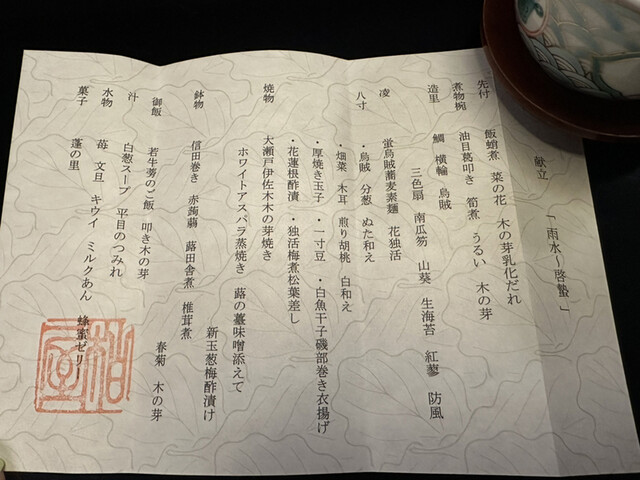 献立 「雨水～啓蟄」
先付 飯蛸煮 菜の花 木の芽乳化だれ
煮物椀 油目葛叩き 筍煮 うるい 木の芽
造里 鯛 横輪 烏賊
三色扇 南瓜笏 山葵 生海苔 紅蓼 防風
凌 蛍烏賊蕎麦素麺 花独活
八寸 ・烏賊 分葱 ぬた和え
・畑菜 木耳 煎り胡桃 白和え
・厚焼き玉子 ・一寸豆 ・白魚干子磯部巻き衣揚げ
・花蓮根酢漬 ・独活梅煮松葉差し
焼物 大瀬戸伊佐木木の芽焼き
ホワイトアスパラ蒸焼き 蕗の薹味噌添えて
新玉葱梅酢漬け
鉢物 信田巻き 赤蒟蒻 蕗田舎煮 椎茸煮
春菊 木の芽
御飯 若牛蒡のご飯 叩き木の芽
汁 白葱スープ 平目のつみれ
水物 苺 文旦 キウイ ミルクあん 蜂蜜ゼリー
菓子 蓬の里